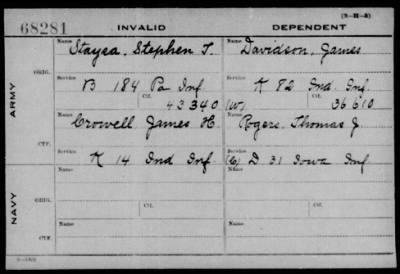 (3-II-3)
68281 INVALID DEPENDENT
Name Name
Stayea, Stephen T. Davidson, James
ORIG. Service Service
B 184 Pa Inf K 82 Ind. Inf.
Ctf. 43340 (W) Ctf. 36610
ARMY
Name Name
Crowell James H. Rogers, Thomas J.
CTF. Service Service
K 14 Ind Inf (C) D 31 Iowa Inf
Name Name
NAVY
ORIG. Ctf. Ctf.
Name Name
CTF.